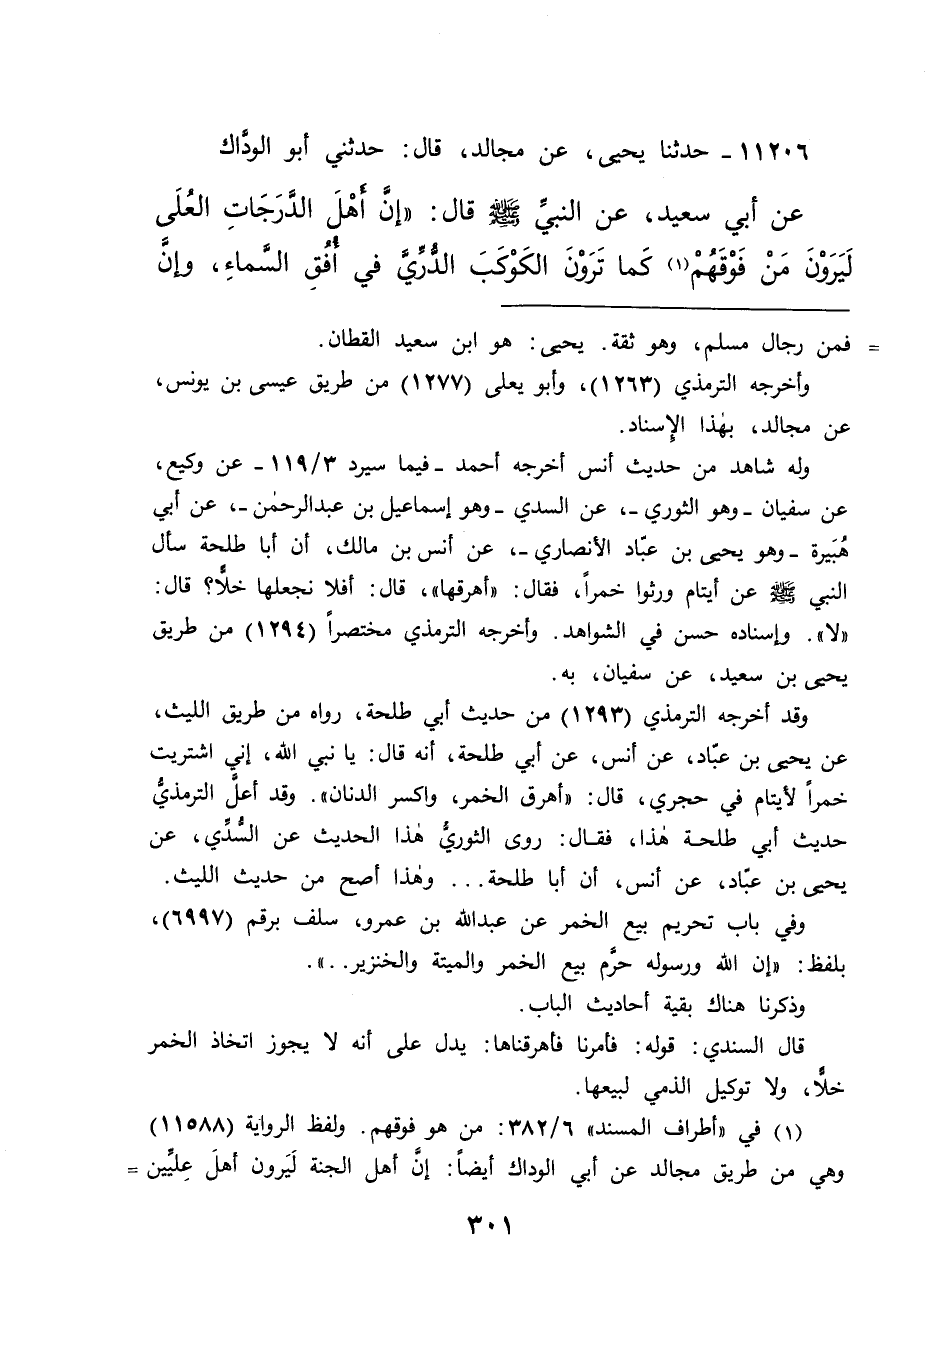 ١١٢٠٦ ـ حدثنا يحيى، عن مجالد، قال: حدثني أبو الودَّاك
عن أبي سعيد، عن النبيِّ ﷺ قال: «إنَّ أَهْلَ الدَّرَجَاتِ العُلَى
لَيَرَوْنَ مَنْ فَوْقَهُمْ(١) كَما تَرَوْنَ الكَوْكَبَ الدُّرِّيَّ في أُفُقِ السَّماءِ، وإنَّ
= فمن رجال مسلم، وهو ثقة. يحيى: هو ابن سعيد القطان.
وأخرجه الترمذي (١٢٦٣)، وأبو يعلى (١٢٧٧) من طريق عيسى بن يونس،
عن مجالد، بهٰذا الإسناد.
وله شاهد من حديث أنس أخرجه أحمد ـ فيما سيرد ١١٩/٣ ـ عن وكيع،
عن سفيان ـ وهو الثوري ـ، عن السدي ـ وهو إسماعيل بن عبدالرحمٰن ـ، عن أبي
هُبَيرة ـ وهو يحيى بن عبَّاد الأنصاري ـ، عن أنس بن مالك، أن أبا طلحة سأل
النبي ﷺ عن أيتام ورثوا خمراً، فقال: «أهرقها»، قال: أفلا نجعلها خلًّا؟ قال:
«لا». وإسناده حسن في الشواهد. وأخرجه الترمذي مختصراً (١٢٩٤) من طريق
يحيى بن سعيد، عن سفيان، به.
وقد أخرجه الترمذي (١٢٩٣) من حديث أبي طلحة، رواه من طريق الليث،
عن يحيى بن عبّاد، عن أنس، عن أبي طلحة، أنه قال: يا نبي الله، إني اشتريت
خمراً لأيتام في حجري، قال: «أهرق الخمر، واكسر الدنان». وقد أعلَّ الترمذيُّ
حديث أبي طلحة هٰذا، فقال: روى الثوريُّ هٰذا الحديث عن السُّدِّي، عن
يحيى بن عبّاد، عن أنس، أن أبا طلحة... وهٰذا أصح من حديث الليث.
وفي باب تحريم بيع الخمر عن عبدالله بن عمرو، سلف برقم (٦٩٩٧)،
بلفظ: «إن الله ورسوله حرَّم بيع الخمر والميتة والخنزير..».
وذكرنا هناك بقية أحاديث الباب.
قال السندي: قوله: فأمرنا فأهرقناها: يدل على أنه لا يجوز اتخاذ الخمر
خلًّا، ولا توكيل الذمي لبيعها.
(١) في «أطراف المسند» ٣٨٢/٦: من هو فوقهم. ولفظ الرواية (١١٥٨٨)
وهي من طريق مجالد عن أبي الوداك أيضاً: إنَّ أهل الجنة لَيَرون أهلَ عِليِّين =
٣٠١